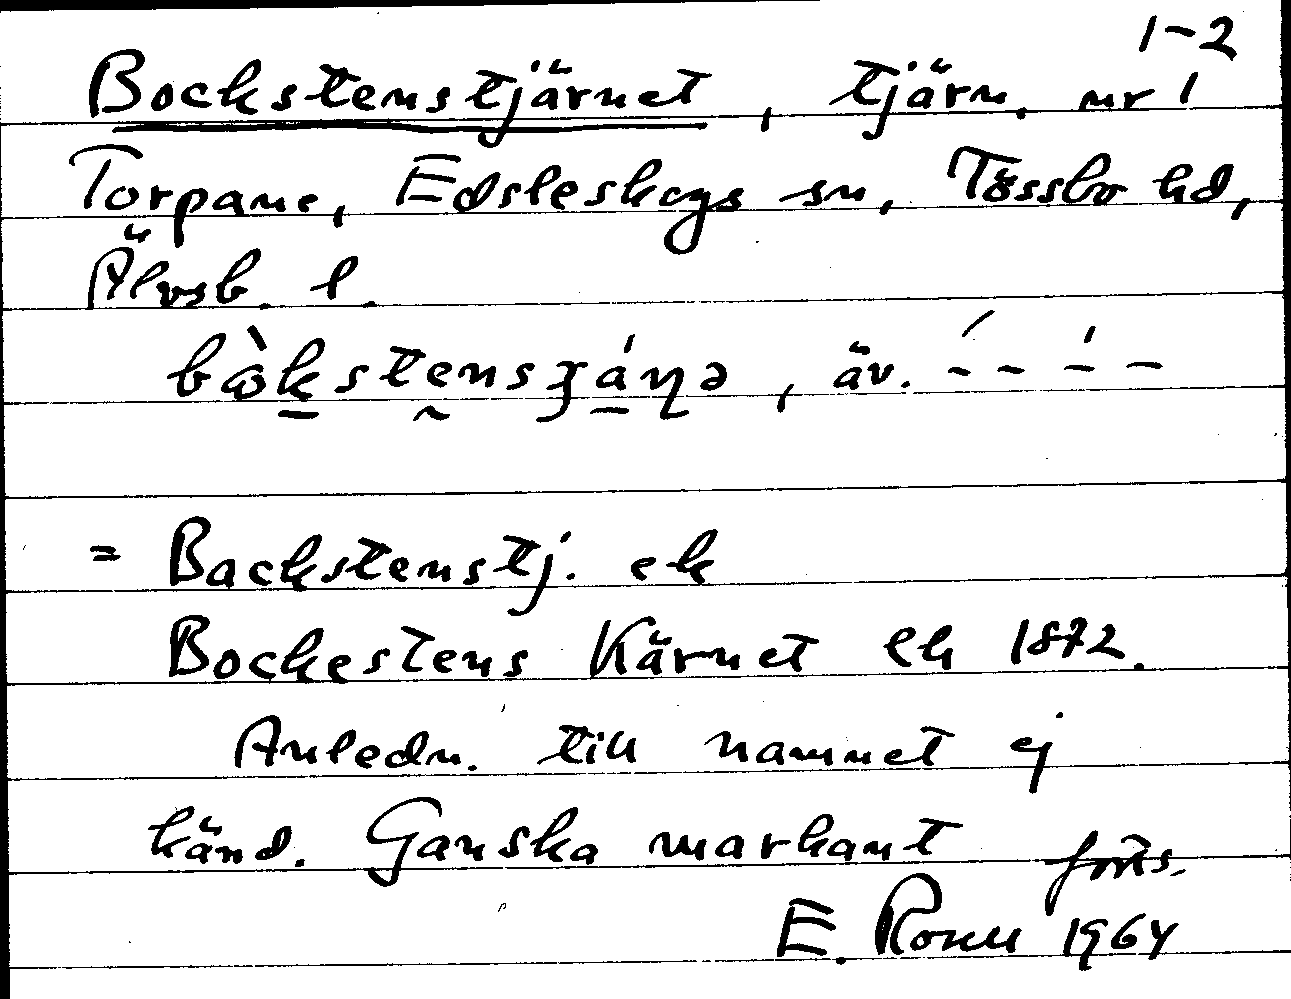 1-2
Bockstenstjärnet, tjärn, nr 1
Torpane, Edsleskogs sn, Tössbo hd,
Älvsb. l.
= Backstenstj. ek
Bockestens Kärnet Ek 1872.
Anledn. till namnet ej
känd. Ganska markant forts.
E. 1964